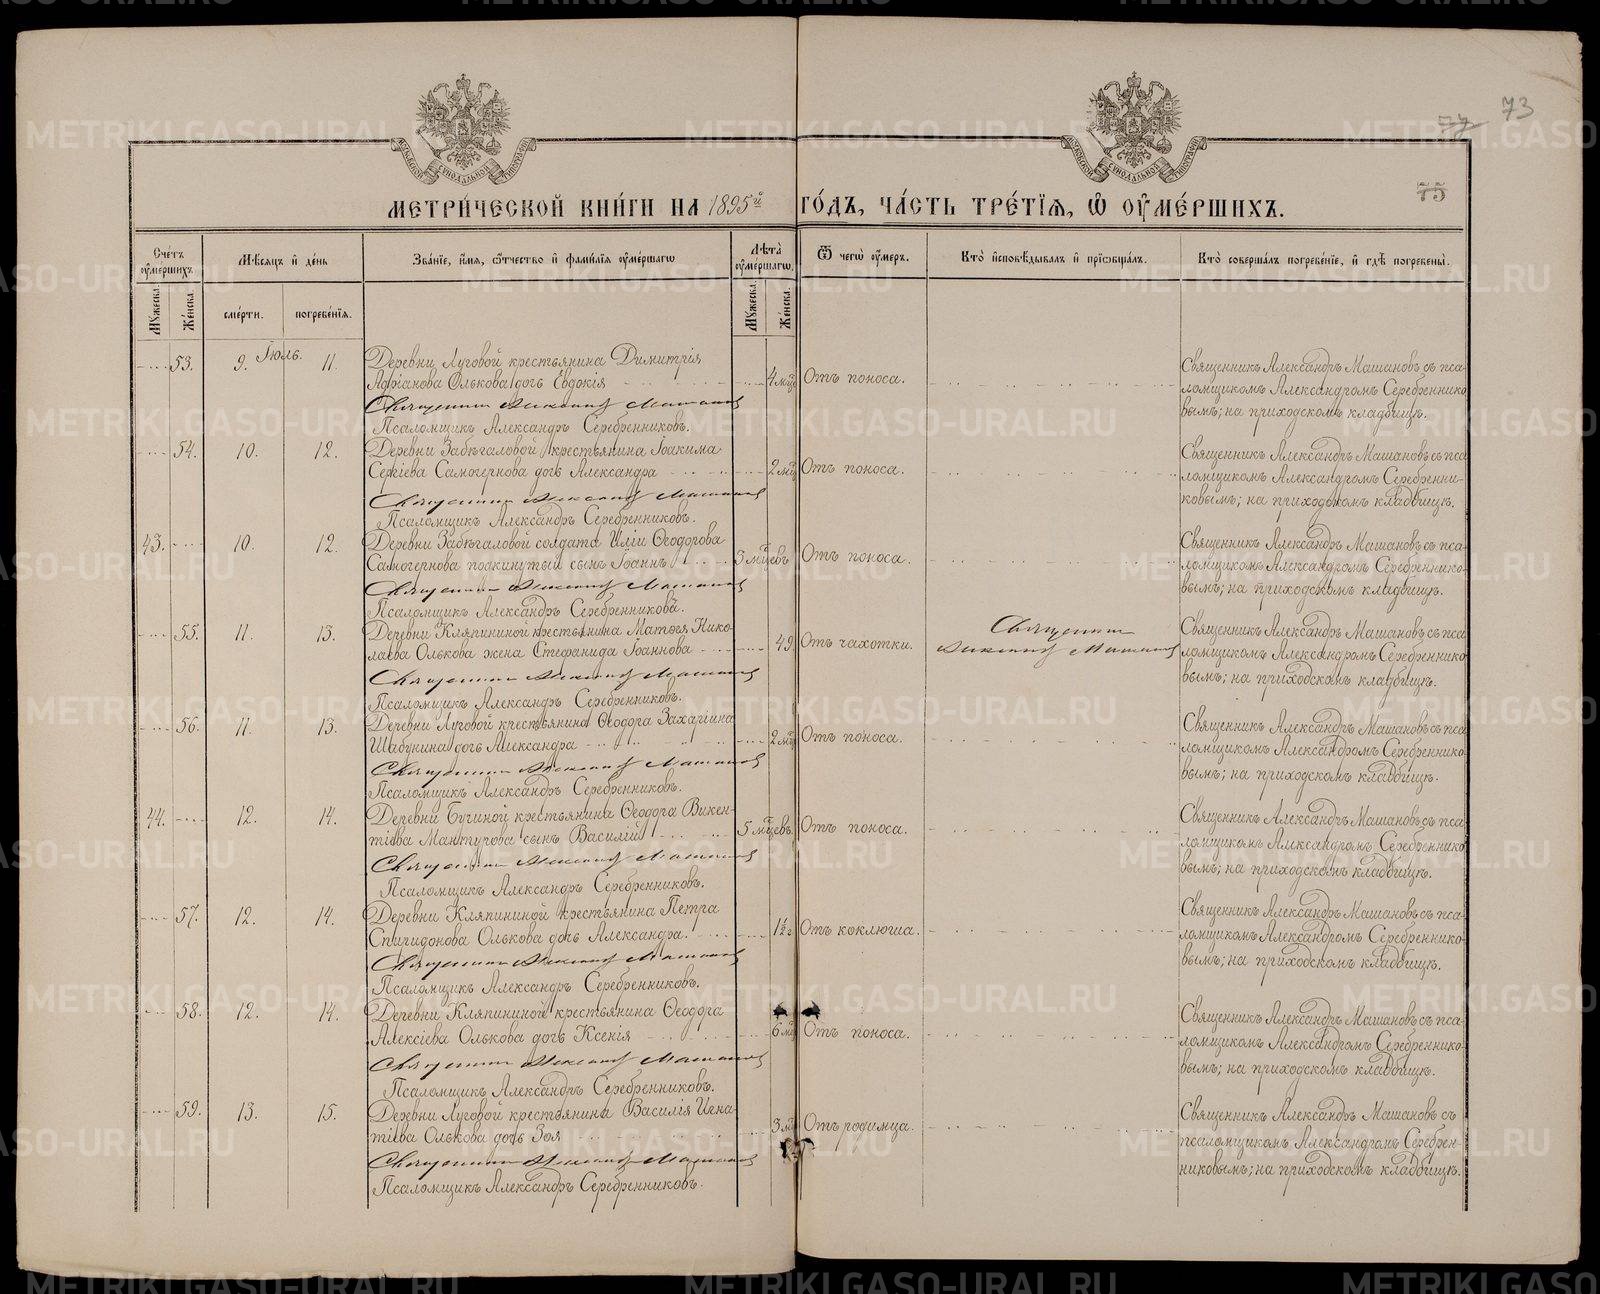 73
77
75
МЕТРИ́ЧЕСКОЙ КНИ́ГИ НА 1895й ГО́ДЪ, ЧА́СТЬ ТРЕ́ТІѦ, Ѡ ОУМЕ́РШИХЪ.
Сче́тъ оуме́ршихъ.
Мѣ́сяцъ и де́нь
Зва́ніе, и́мя, ѻ҆́тчество и фами́лія оуме́ршагѡ
Лѣ́та оуме́ршагѡ.
Ѿ чегѡ̀ оу́меръ.
Кто̀ и҆сповѣ́дывалъ и҆ прїѡбща́лъ.
Кто̀ соверша́лъ погребе́ніе, и҆ гдѣ̀ погребены̀.
Му́жеска.
Же́нска.
сме́рти.
погребе́нія.
Му́жеска.
Же́нска.
Іюль.
53. 9. 11. Деревни Луговой крестьянина Димитрія
Адріанова Олькова дочь Евдокія 4 мцъ Отъ поноса.
Священникъ Александръ Машановъ
Псаломщикъ Александръ Серебренниковъ.
Священникъ Александръ Машановъ съ пса-
ломщикомъ Александромъ Серебреннико-
вымъ; на приходскомъ кладбищѣ.
54. 10. 12. Деревни Забѣгаловой крестьянина Іоакима
Сергіева Самочернова дочь Александра 2 мцъ Отъ поноса.
Священникъ Александръ Машановъ
Псаломщикъ Александръ Серебренниковъ.
Священникъ Александръ Машановъ съ пса-
ломщикомъ Александромъ Серебренни-
ковымъ; на приходскомъ кладбищѣ.
43. 10. 12. Деревни Забѣгаловой солдата Иліи Ѳеодорова
Самочернова подкинутый сынъ Іоаннъ 3 мцевъ Отъ поноса.
Священникъ Александръ Машановъ
Псаломщикъ Александръ Серебренниковъ.
Священникъ Александръ Машановъ съ пса-
ломщикомъ Александромъ Серебреннико-
вымъ; на приходскомъ кладбищѣ.
55. 11. 13. Деревни Кляпининой крестьянина Матѳея Нико-
лаева Олькова жена Стефанида Іоаннова 49. Отъ чахотки.
Священникъ Александръ Машановъ
Псаломщикъ Александръ Серебренниковъ.
Священникъ
Александръ Машановъ
Священникъ Александръ Машановъ съ пса-
ломщикомъ Александромъ Серебреннико-
вымъ; на приходскомъ кладбищѣ.
56. 11. 13. Деревни Луговой крестьянина Ѳеодора Захаріина
Шабунина дочь Александра 2 мцъ Отъ поноса.
Священникъ Александръ Машановъ
Псаломщикъ Александръ Серебренниковъ.
Священникъ Александръ Машановъ съ пса-
ломщикомъ Александромъ Серебреннико-
вымъ; на приходскомъ кладбищѣ.
44. 12. 14. Деревни Бучиной крестьянина Ѳеодора Викен-
тіева Мантурова сынъ Василій 5 мцевъ Отъ поноса.
Священникъ Александръ Машановъ
Псаломщикъ Александръ Серебренниковъ.
Священникъ Александръ Машановъ съ пса-
ломщикомъ Александромъ Серебреннико-
вымъ; на приходскомъ кладбищѣ.
57. 12. 14. Деревни Кляпининой крестьянина Петра
Спиридонова Олькова дочь Александра. 1½ г Отъ коклюша.
Священникъ Александръ Машановъ
Псаломщикъ Александръ Серебренниковъ.
Священникъ Александръ Машановъ съ пса-
ломщикомъ Александромъ Серебреннико-
вымъ; на приходскомъ кладбищѣ.
58. 12. 14. Деревни Кляпининой крестьянина Ѳеодора
Алексіева Олькова дочь Ксенія 6 мц Отъ поноса.
Священникъ Александръ Машановъ
Псаломщикъ Александръ Серебренниковъ.
Священникъ Александръ Машановъ съ пса-
ломщикомъ Александромъ Серебреннико-
вымъ; на приходскомъ кладбищѣ.
59. 13. 15. Деревни Луговой крестьянина Василія Игна-
тіева Олькова дочь Зоя 3 мц Отъ родимца.
Священникъ Александръ Машановъ
Псаломщикъ Александръ Серебренниковъ.
Священникъ Александръ Машановъ съ
псаломщикомъ Александромъ Серебрен-
никовымъ; на приходскомъ кладбищѣ.
METRIKI.GASO-URAL.RU